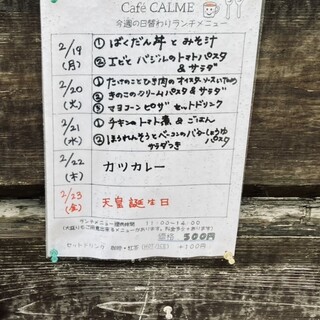 Café CALME
今週の日替わりランチメニュー
2/19 (月) ① ばくだん丼とみそ汁
② エビとバジルのトマトパスタ & サラダ
2/20 (火) ① たけのことひき肉のオイスターソースいため
② きのこのクリームパスタ & サラダ
③ マヨコーンピザ セットドリンク
2/21 (水) ① チキンのトマト煮 & ごはん
② ほうれんそうとベーコンのバターしょうゆパスタ
サラダつき
2/22 (木) カツカレー
2/23 (金) 天皇誕生日
ランチメニュー提供時間 11:00~14:00
価格 500円
セットドリンク 珈琲・紅茶 +100円